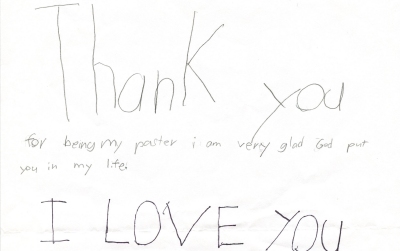 Thank you
for being my paster i am verry glad God put
you in my life.
I LOVE YOU